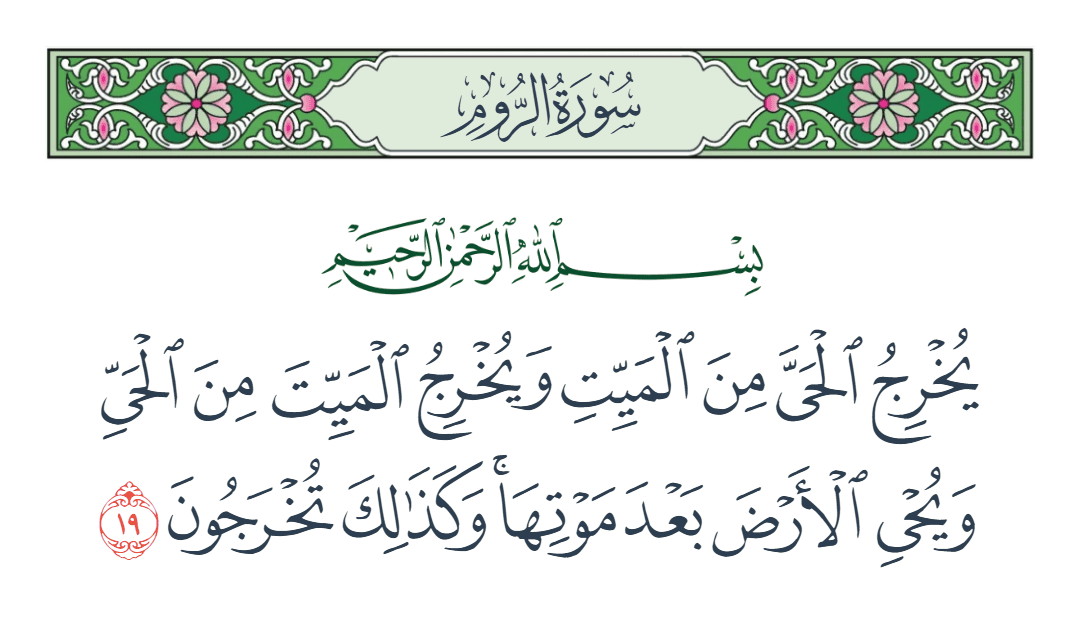 سُورَةُ الرُّومِ
بِسْمِ ٱللَّهِ ٱلرَّحْمَٰنِ ٱلرَّحِيمِ
يُخْرِجُ ٱلْحَىَّ مِنَ ٱلْمَيِّتِ وَيُخْرِجُ ٱلْمَيِّتَ مِنَ ٱلْحَىِّ
وَيُحْىِ ٱلْأَرْضَ بَعْدَ مَوْتِهَا ۚ وَكَذَٰلِكَ تُخْرَجُونَ ١٩